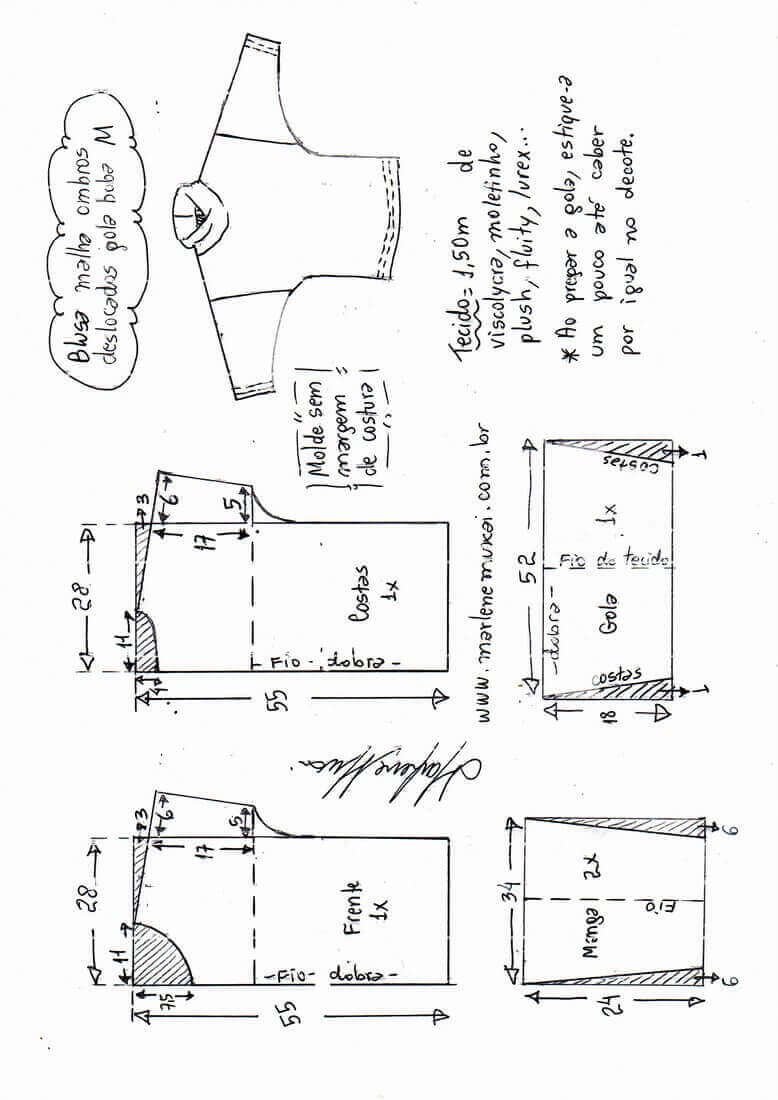 Blusa malha ombros
deslocados gola boba M
28
11
7,5
3
6
17
5
Frente
1x
-Fio- dobra-
55
28
11
4
3
6
17
5
Costas
1x
-Fio- dobra-
55
Molde sem
margem
de costura
Marlene Mukai
www.marlenemukai.com.br
34
Manga 2x
Fio
24
6
6
52
-dobra-
Gola 1x
Fio do tecido
costas
costas
18
1
1
Tecido= 1,50m de
viscolycra, moletinho,
plush, fluity, lurex...
* Ao pregar a gola, estique-a
um pouco até caber
por igual no decote.